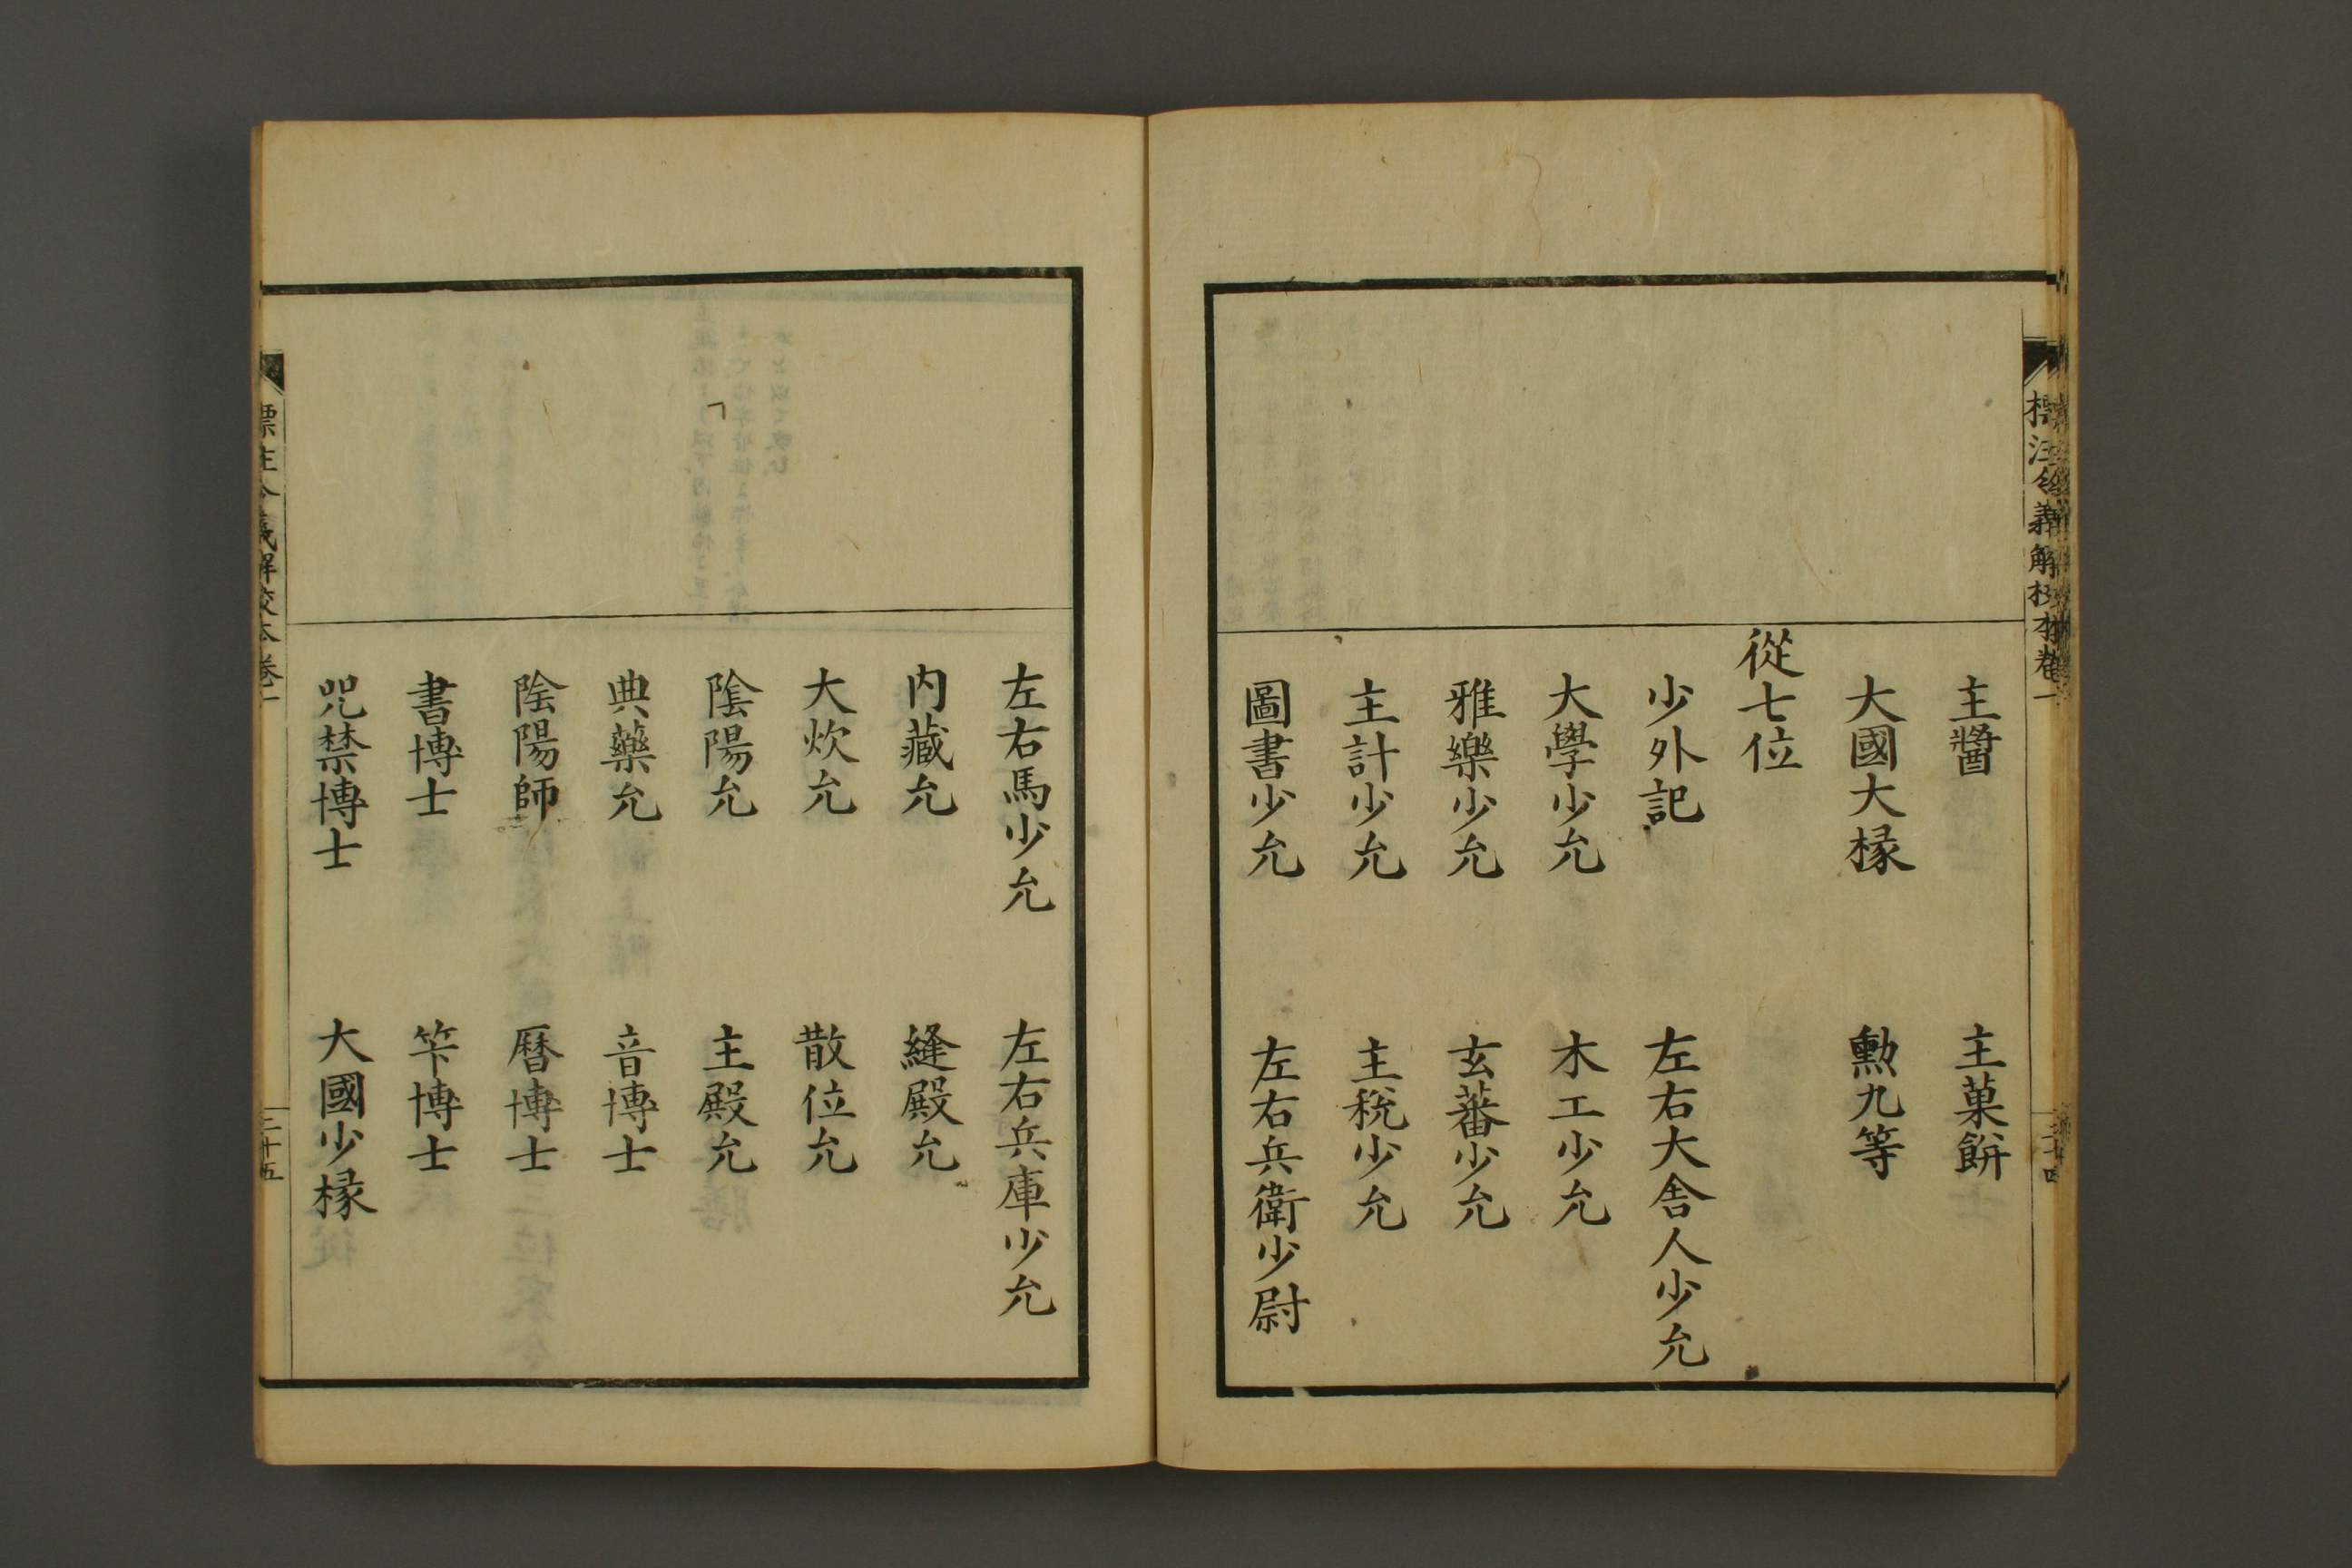 標注令義解校本卷一
主醬 主菓餅
大國大椽 勲九等
從七位
少外記 左右大舎人少允
大學少允 木工少允
雅樂少允 玄蕃少允
主計少允 主税少允
圖書少允 左右兵衛少尉
左右馬少允 左右兵庫少允
内藏允 縫殿允
大炊允 散位允
陰陽允 主殿允
典藥允 音博士
陰陽師 暦博士
書博士 笇博士
咒禁博士 大國少椽
標注令義解校本卷一
二十五